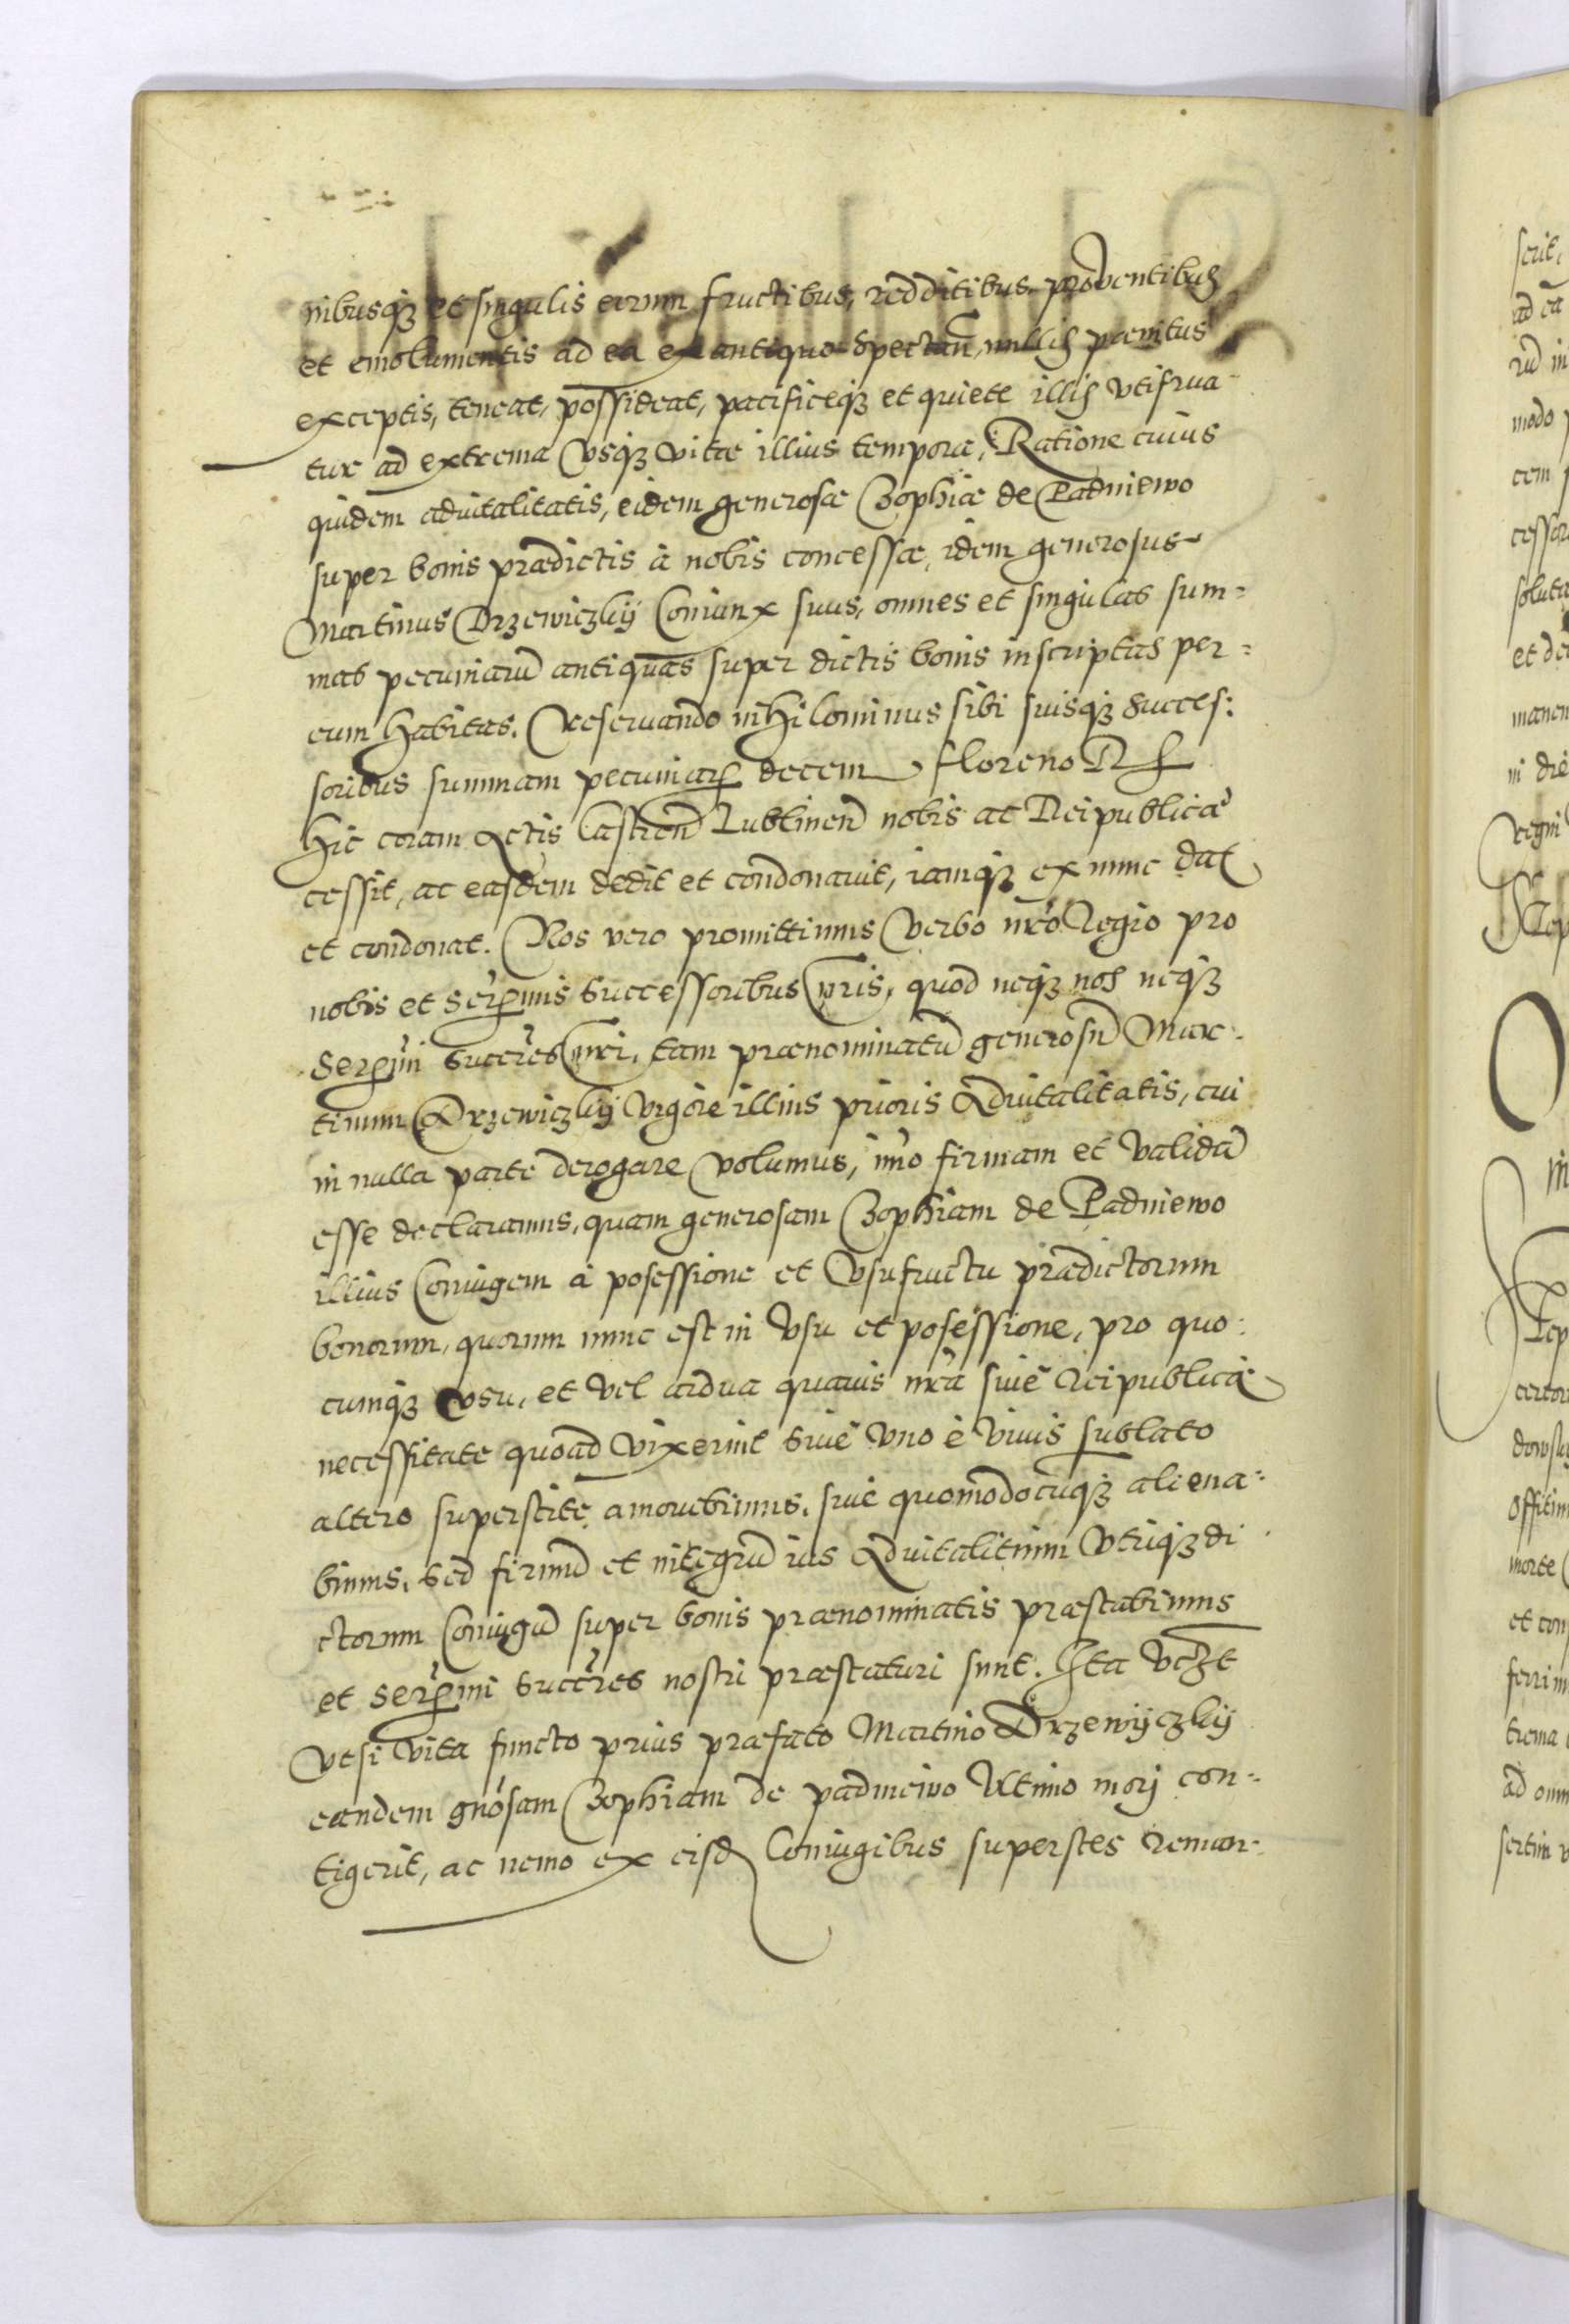 nibusq3 et singulis eorum fructibus, redditibus proventibus
et emolumentis ad ea ex antiquo spectan, nullis paenitus
exceptis, teneat, possideat, pacificeq3 et quiete illis utifrua-
tur ad extrema usq3 vitae illius tempora, Ratione cuius
quidem advitalitatis, eidem generosae Zophiae de Padniewo
super bonis praedictis à nobis concessae, idem generosus
Martinus Drzewiczkij Coniunx suus, omnes et singulas sum=
mas pecuniarū antiquas super dictis bonis inscriptas per=
eum habitas. Reservando nihilominus sibi suisq3 succes:
soribus summam pecuniar decem floreno R
hic coram Actis Castren Lublinen nobis ac Reipublicae
cessit, ac easdem dedit et condonavit, iamq3 ex nunc dat
et condonat. Nos vero promittimus Verbo nr̄o Regio pro
nobis et Serᵐⁱˢ Successoribus nr̄is, quod neq3 nos neq3
Serᵐⁱ Succr̄es nr̄i, tam praenominatū generosū Mar:
tinum Drzewiczkij vigore illius prioris Advitalitatis, cui
in nulla parte derogare volumus, imo firmam et validā
esse declaramus, quam generosam Zophiam de Padniewo
illius Coniugem à posessione et Usufructu praedictorum
bonorum, quorum nunc est in Usu et posessione, pro quo:
cumq3 usu, et vel ardua quavis nr̄a sive Reipublicae
necessitate quoad vixerint sive uno è vivis sublato
altero superstite amovebimus, sive quomodocūq3 aliena=
bimus, sed firmū et integrū ius Advitalitium utriq3 di
ctorum Coniugū super bonis praenominatis praestabimus
et Serᵐⁱ Succr̄es nostri praestaturi sunt. Ita vczt
ut si vita functo prius praefato Martino Drzewyczkij
eandem gnōsam Zophiam de padniewo ultimo mori con=
tigerit, ac nemo ex eisd Coniugibus superstes reman=